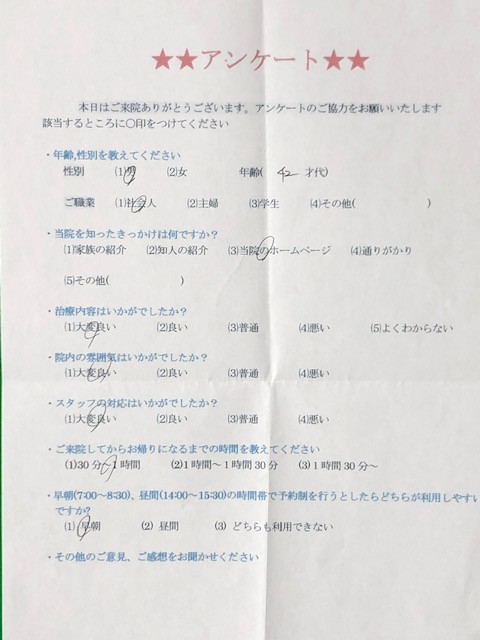 ★★アンケート★★
本日はご来院ありがとうございます。アンケートのご協力をお願いいたします
該当するところに〇印をつけてください
・年齢,性別を教えてください
性別 (1)男 (2)女 年齢( 42 才代)
ご職業 (1)社会人 (2)主婦 (3)学生 (4)その他( )
・当院を知ったきっかけは何ですか?
(1)家族の紹介 (2)知人の紹介 (3)当院のホームページ (4)通りがかり
(5)その他( )
・治療内容はいかがでしたか?
(1)大変良い (2)良い (3)普通 (4)悪い (5)よくわからない
・院内の雰囲気はいかがでしたか?
(1)大変良い (2)良い (3)普通 (4)悪い
・スタッフの対応はいかがでしたか?
(1)大変良い (2)良い (3)普通 (4)悪い
・ご来院してからお帰りになるまでの時間を教えてください
(1)30分~1時間 (2)1時間~1時間30分 (3)1時間30分~
・早朝(7:00~8:30)、昼間(14:00~15:30)の時間帯で予約制を行うとしたらどちらが利用しやすい
ですか?
(1) 早朝 (2) 昼間 (3) どちらも利用できない
・その他のご意見、ご感想をお聞かせください